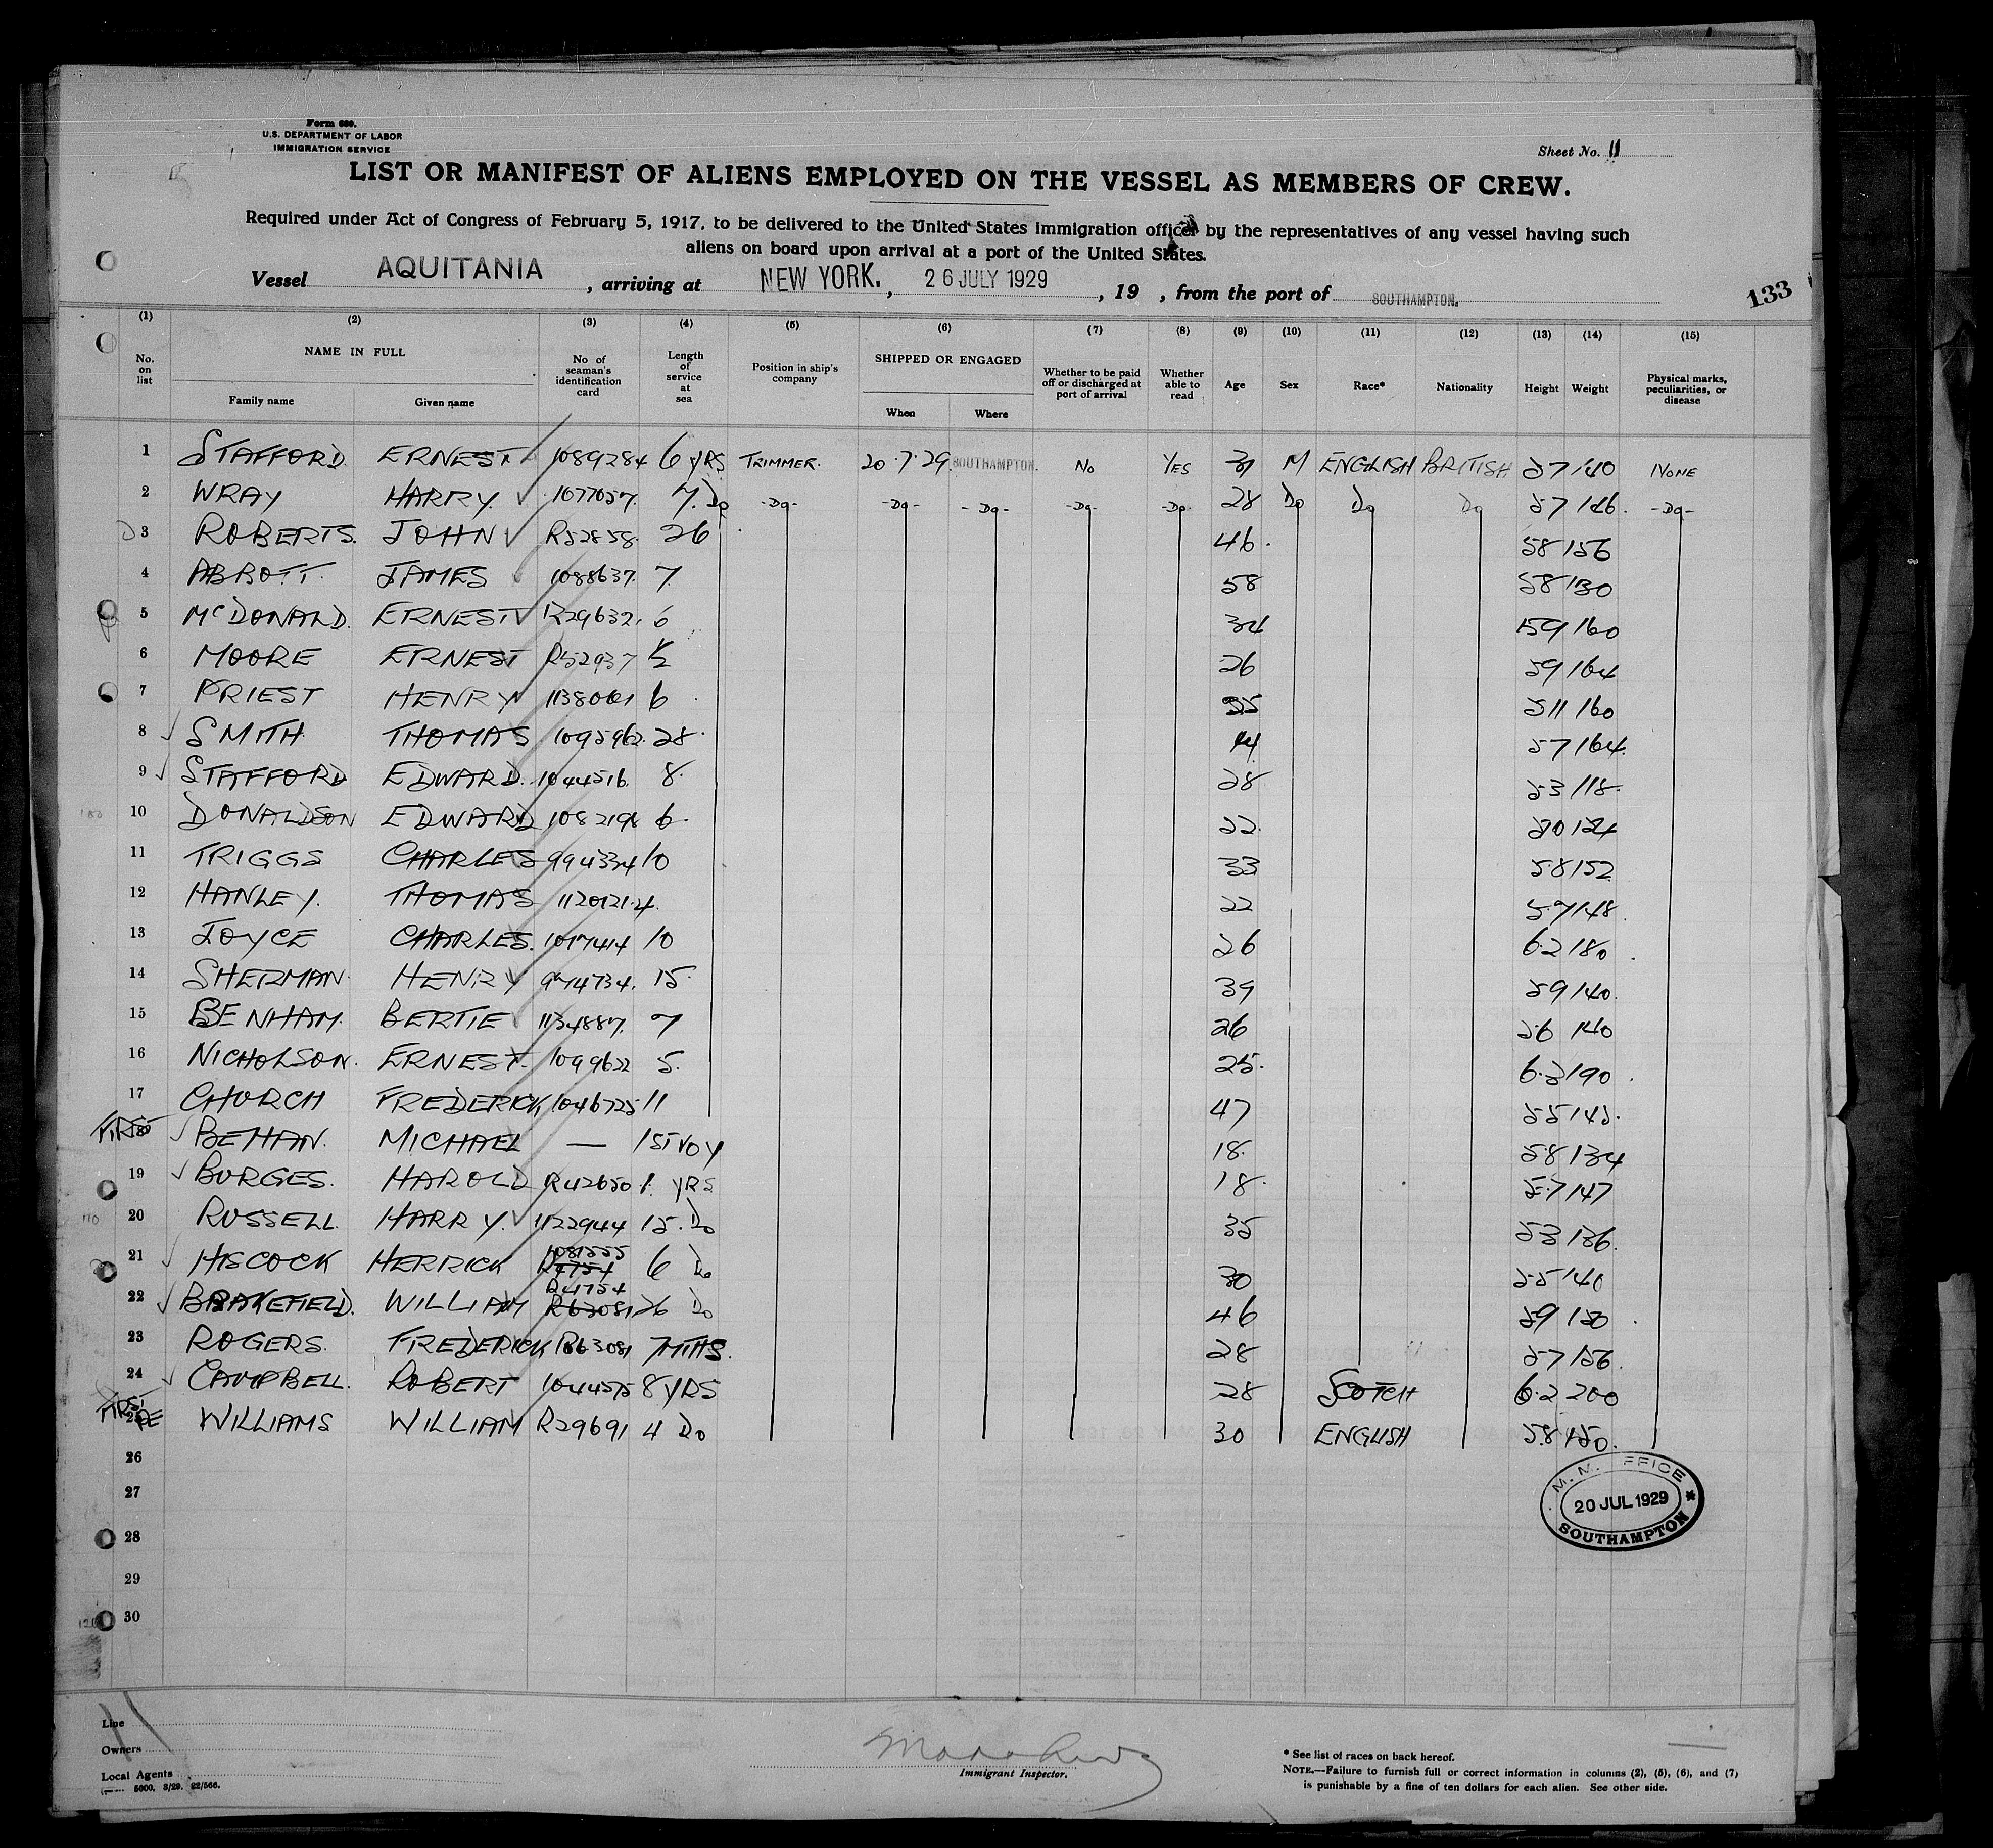 Form 680.
U.S. DEPARTMENT OF LABOR
IMMIGRATION SERVICE
Sheet No. 11
LIST OR MANIFEST OF ALIENS EMPLOYED ON THE VESSEL AS MEMBERS OF CREW.
Required under Act of Congress of February 5, 1917, to be delivered to the United States immigration officer by the representatives of any vessel having such
aliens on board upon arrival at a port of the United States.
Vessel AQUITANIA, arriving at NEW YORK., 26 JULY 1929, 19 , from the port of SOUTHAMPTON.
133
(1) (2) (3) (4) (5) (6) (7) (8) (9) (10) (11) (12) (13) (14) (15)
No. on list
NAME IN FULL
Family name Given name
No of seaman's identification card
Length of service at sea
Position in ship's company
SHIPPED OR ENGAGED
When Where
Whether to be paid off or discharged at port of arrival
Whether able to read
Age
Sex
Race*
Nationality
Height
Weight
Physical marks, peculiarities, or disease
1 STAFFORD ERNEST 1089284 6 YRS TRIMMER. 20.7.29 SOUTHAMPTON. NO YES M ENGLISH BRITISH 57 140 NONE
2 WRAY HARRY. 1077057. 7. Do -Do- -Do- -Do- -Do- -Do- 28 Do Do Do 57 146. -Do-
3 ROBERTS. JOHN R52858 26 46. 58 156
4 ABBOTT. JAMES 1088637. 7. 58 58 130
5 McDONALD. ERNEST R29632. 6 34 59 160
6 MOORE ERNEST R52937 1/2 26 59 164
7 PRIEST HENRY 1138061 6 35 511 160
8 SMITH THOMAS 1095962. 28. 44 57 164.
9 STAFFORD EDWARD. 1044516. 8. 28 53 118.
10 DONALDSON EDWARD 1082198 6. 22. 124
11 TRIGGS CHARLES 994334 10 33 5.8 152
12 HANLEY. THOMAS 1120121. 4. 22 5.7 148.
13 JOYCE CHARLES. 1017414 10 26 6.2 180.
14 SHERMAN. HENRY 974734. 15. 39 59 140.
15 BENHAM. BERTIE 1134887. 7 26 56 140
16 NICHOLSON. ERNEST. 1099622 5. 25. 6.3 190.
17 CHURCH FREDERICK 1046725 11 47 55 145.
FIRST BEHAN. MICHAEL — 1ST VOY 18. 58 134
19 BURGES. HAROLD R42650 1. YRS 18. 5.7 147
20 RUSSELL. HARRY. 1122944 15. Do 35 53 136.
21 HISCOCK HERRICK 1081555 R4754 6 Do 30 55 140
22 BRAKEFIELD. WILLIAM R4754 R63081 26 Do 46 59 150.
23 ROGERS. FREDERICK R63081 7 MTHS. 28 57 156.
24 CAMPBELL. ROBERT 1044575 8 YRS 28 SCOTCH 6.2 200
FIRST 25 WILLIAMS WILLIAM R29691 4 Do 30 ENGLISH 5.8 150.
26
27
28
29
30
M. M. OFFICE
20 JUL 1929
SOUTHAMPTON
Line
Owners
Local Agents
5000. 3/29. 82/566.
Immigrant Inspector.
* See list of races on back hereof.
NOTE.—Failure to furnish full or correct information in columns (2), (5), (6), and (7)
is punishable by a fine of ten dollars for each alien. See other side.